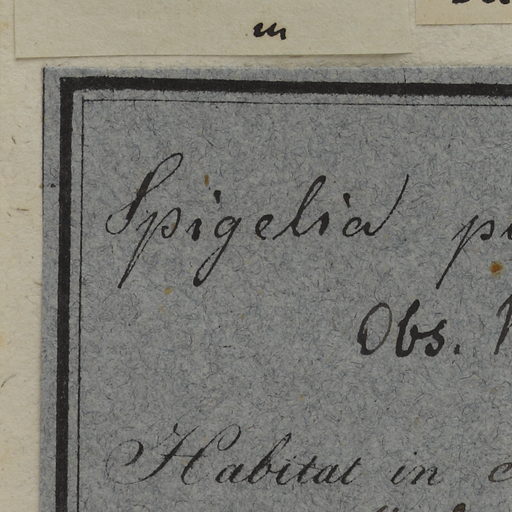 m
Spigelia
Obs.
Habitat in